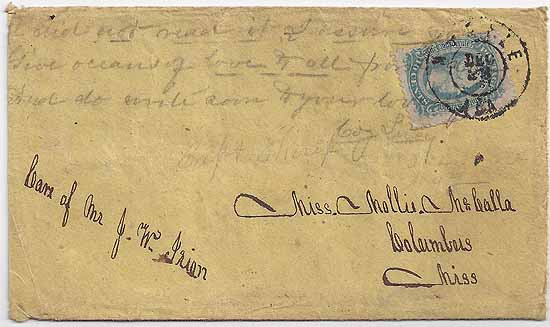 I did not read it I assure
Give oceans of love to all
And do write soon to your
MOBILE
DEC
ALA
Care of Mr J. W. Irion
Miss. Mollie. McCalla
Columbus
Miss